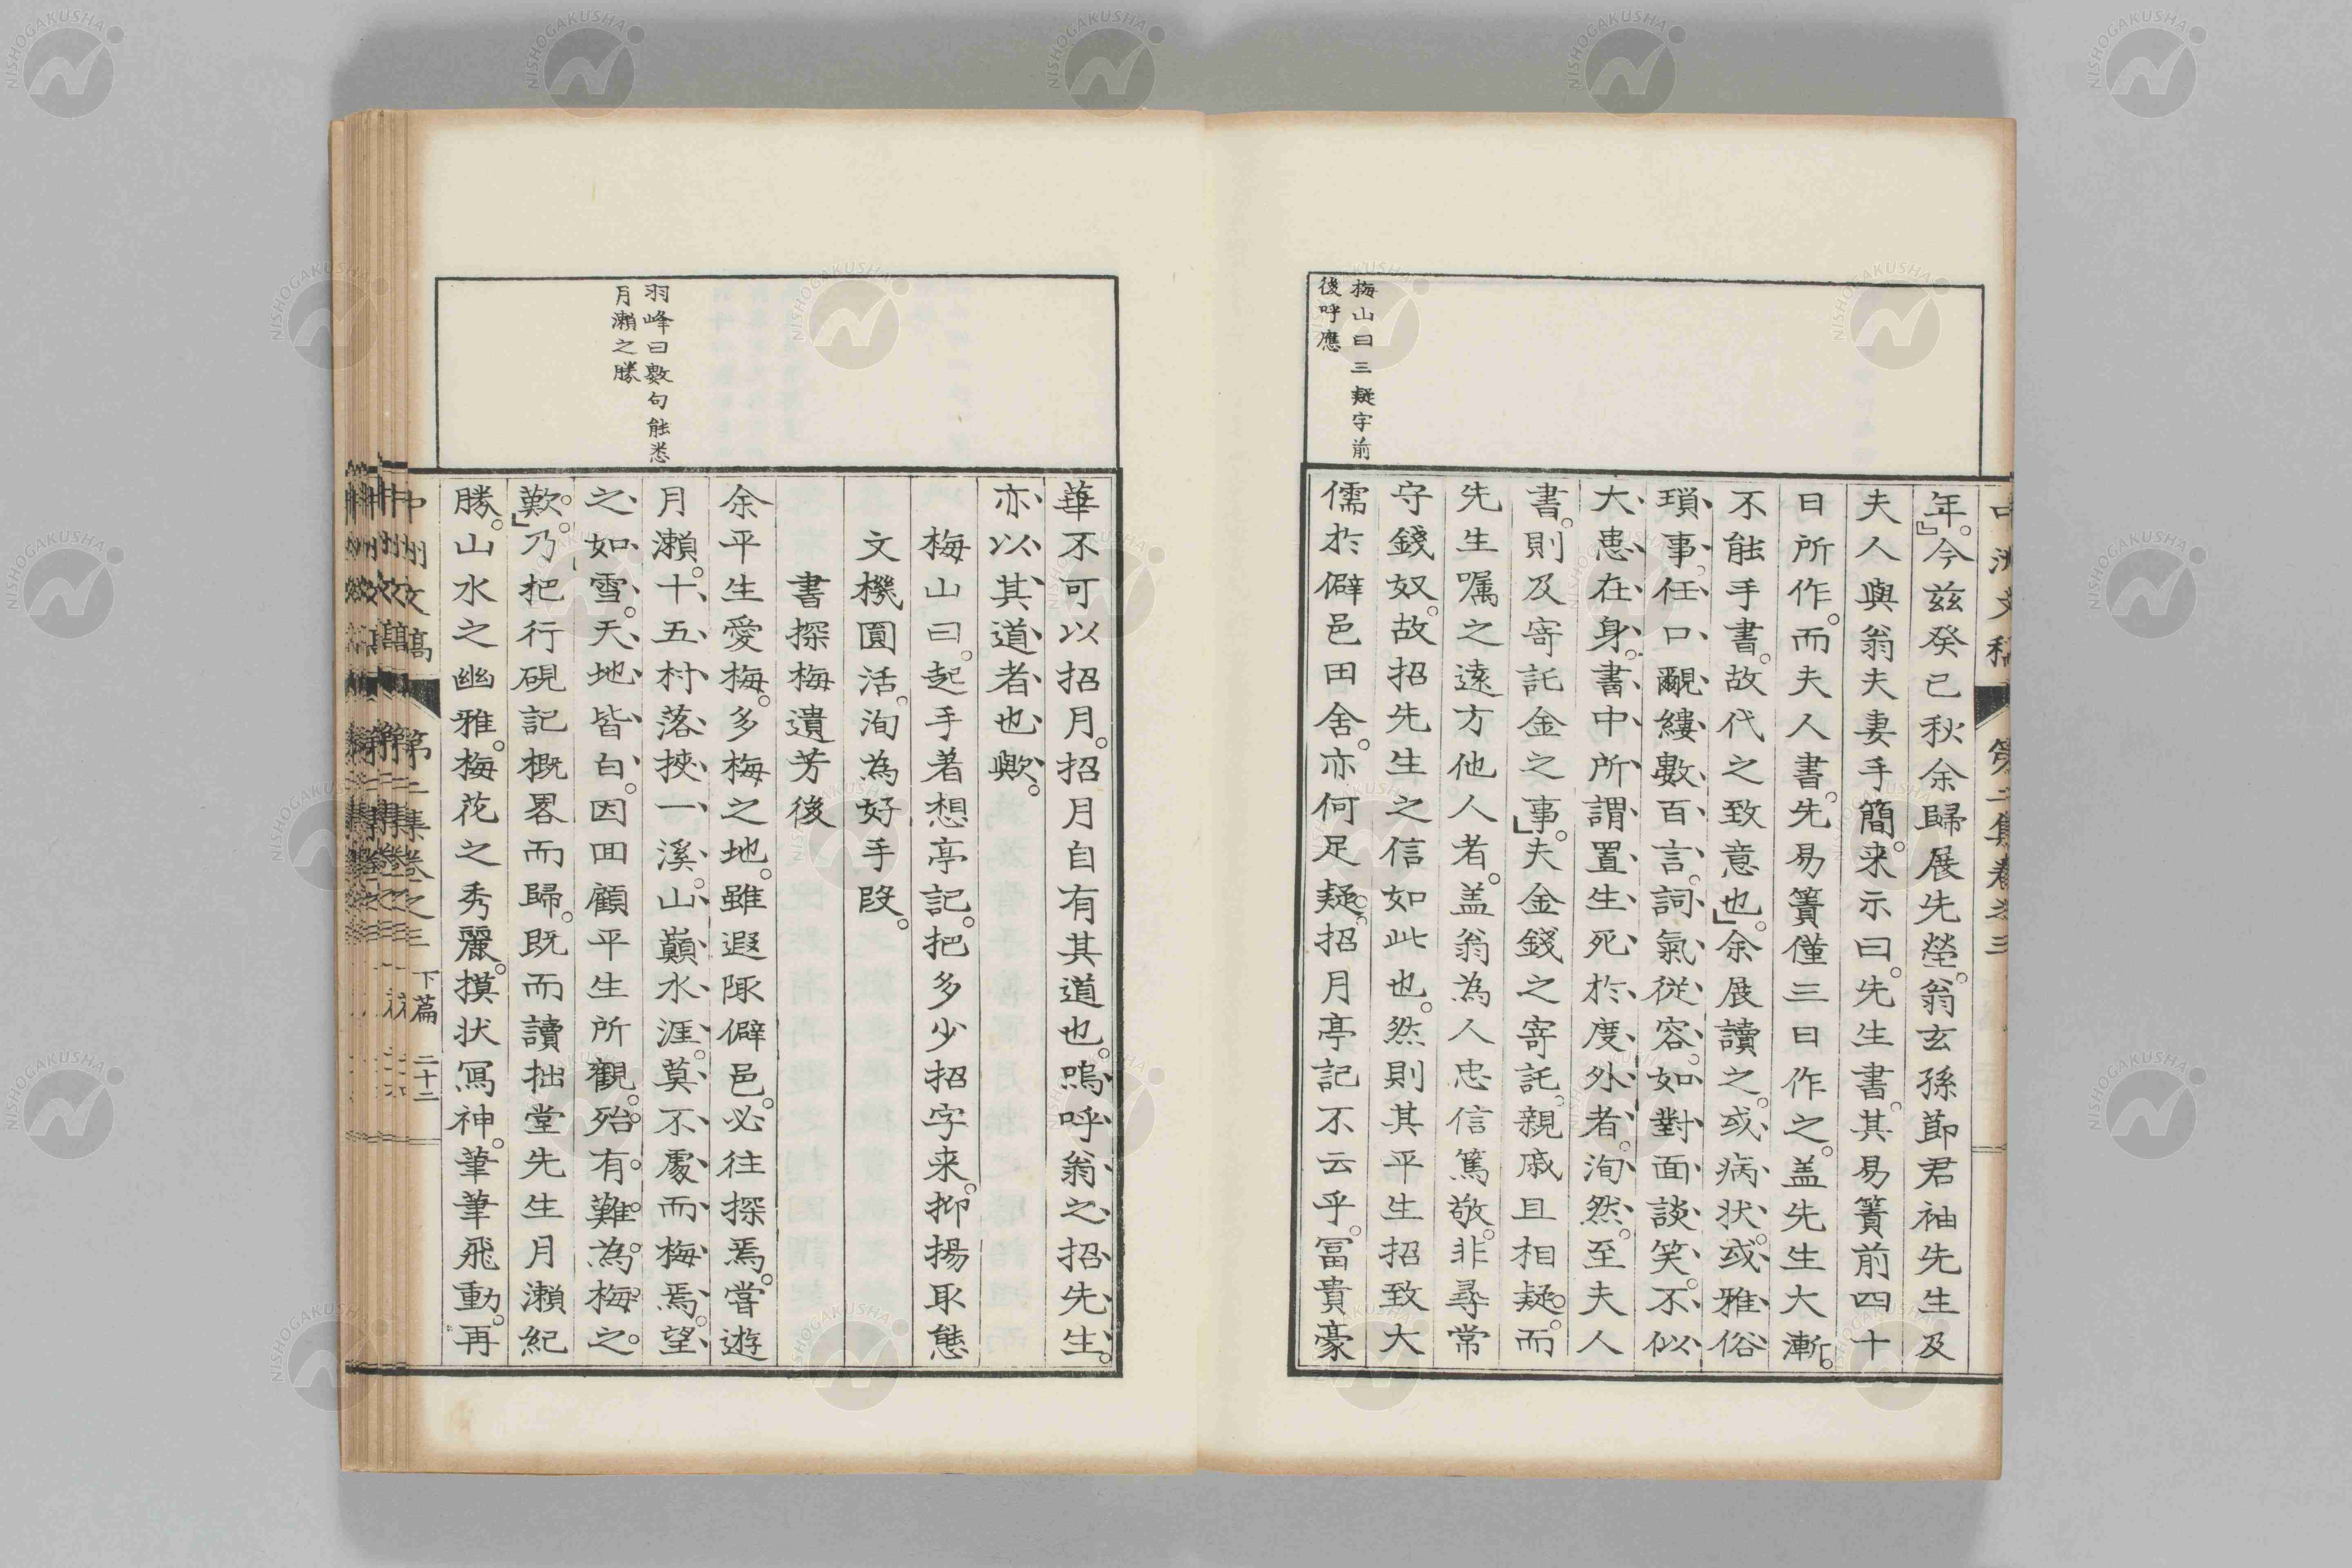 梅山曰三疑字前
後呼應
中洲文稿 第二集卷之三
年。」今茲癸巳秋余歸展先塋。翁玄孫節君袖先生及
夫人與翁夫妻手簡。来示曰。先生書。其易簀前四十
日所作。而夫人書。先易簀僅三日作之。盖先生大漸。
不能手書。故代之致意也。」余展讀之。或病状。或雅俗
瑣事。任口覼縷數百言。詞氣従容。如對面談笑。不似
大患在身。書中所謂置生死於度外者。洵然。至夫人
書。則及寄託金之事。」夫金錢之寄託。親戚且相疑。而
先生嘱之遠方他人者。盖翁為人忠信篤敬。非尋常
守錢奴。故招先生之信如此也。然則其平生招致大
儒於僻邑田舍。亦何足疑。招月亭記不云乎。冨貴豪
羽峰曰數句能悉
月瀨之勝
華不可以招月。招月自有其道也。嗚呼翁之招先生。
亦以其道者也歟。
梅山曰。起手着想亭記。把多少招字来。抑揚取態
文機圓活。洵為好手段。
書探梅遺芳後
余平生愛梅。多梅之地。雖遐陬僻邑。必往探焉。嘗遊
月瀨。十五村落挾一溪。山巓水涯。莫不處而梅焉。望
之如雪。天地皆白。因囬顧平生所觀。殆有難為梅之
歎。」乃把行硯記概畧而歸。既而讀拙堂先生月瀨紀
勝。山水之幽雅。梅花之秀麗。摸状冩神。筆筆飛動。再
中洲文稿 第二集卷之三 下篇 二十二